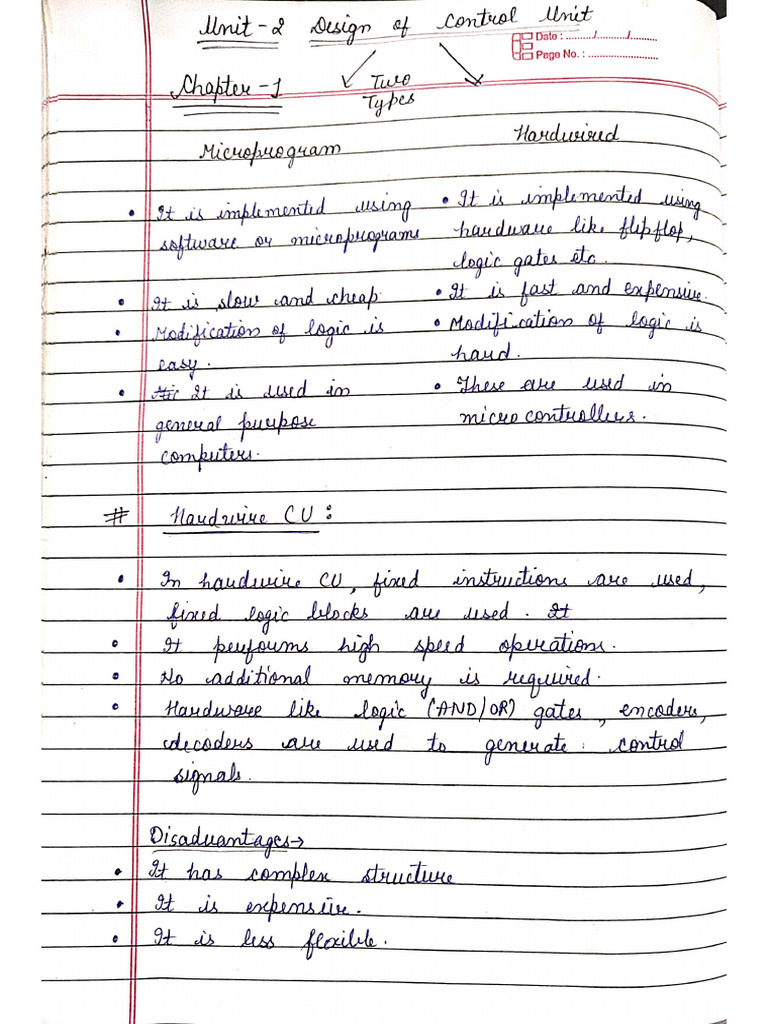 Unit-2 Design of Control Unit
Date : ........./........./.........
Page No. : ..............................
Chapter-1
Two
Types
Microprogram
Hardwired
• It is implemented using
software or microprograms
• It is slow and cheap.
• Modification of logic is
easy.
• It is used in
general purpose
computers.
• It is implemented using
hardware like flipflop,
logic gates etc.
• It is fast and expensive.
• Modification of logic is
hard.
• These are used in
microcontrollers.
# Hardwire CU :
• In hardwire CU, fixed instructions are used,
fixed logic blocks are used. It
• It performs high speed operations.
• No additional memory is required.
• Hardware like logic (AND/OR) gates, encoders,
decoders are used to generate control
signals.
Disadvantages→
• It has complex structure
• It is expensive.
• It is less flexible.